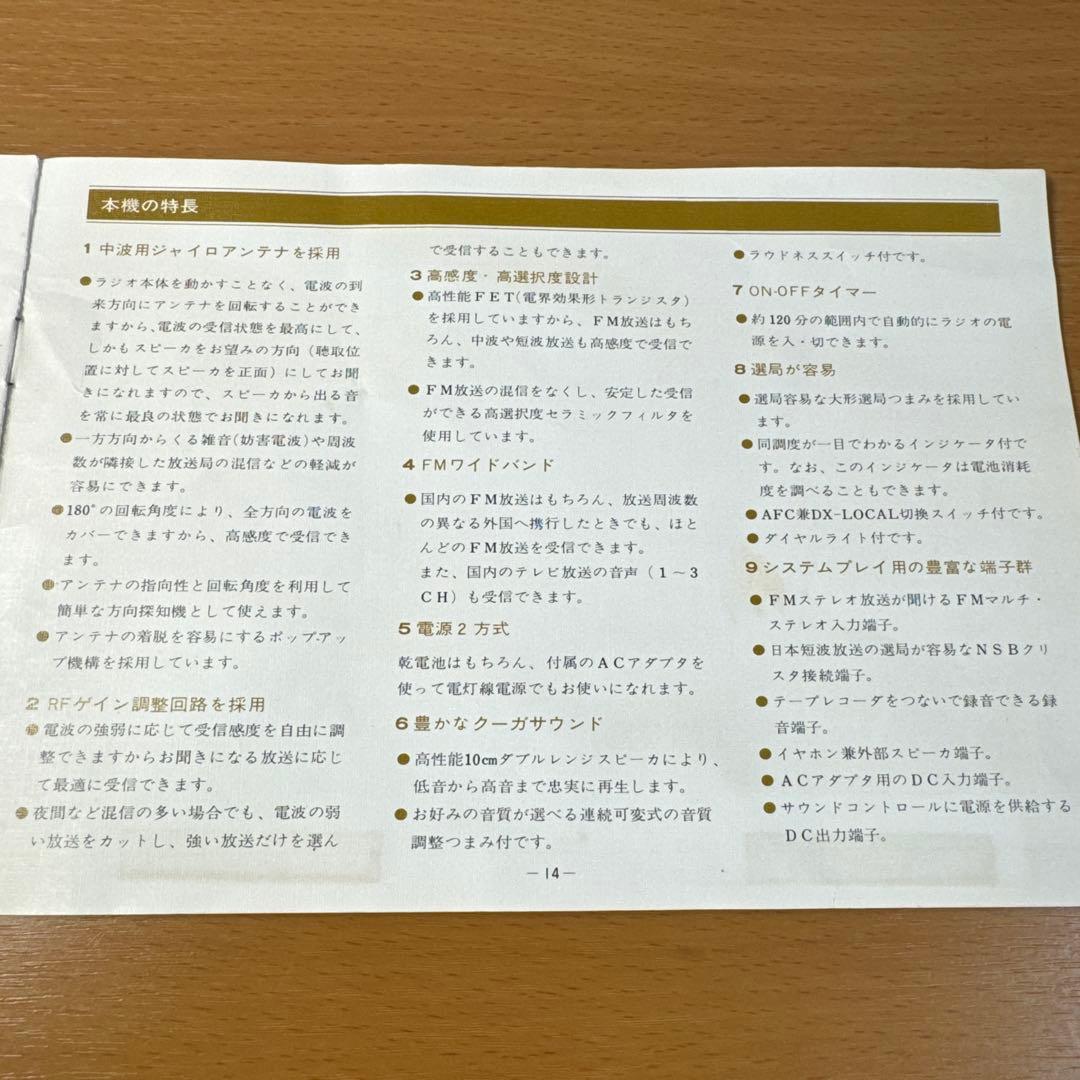 本機の特長
1 中波用ジャイロアンテナを採用
●ラジオ本体を動かすことなく、電波の到
来方向にアンテナを回転することができ
ますから、電波の受信状態を最高にして、
しかもスピーカをお望みの方向（聴取位
置に対してスピーカを正面）にしてお聞
きになれますので、スピーカから出る音
を常に最良の状態でお聞きになれます。
●一方方向からくる雑音(妨害電波)や周波
数が隣接した放送局の混信などの軽減が
容易にできます。
●180°の回転角度により、全方向の電波を
カバーできますから、高感度で受信でき
ます。
●アンテナの指向性と回転角度を利用して
簡単な方向探知機として使えます。
●アンテナの着脱を容易にするポップアッ
プ機構を採用しています。
2 RFゲイン調整回路を採用
●電波の強弱に応じて受信感度を自由に調
整できますからお聞きになる放送に応じ
て最適に受信できます。
●夜間など混信の多い場合でも、電波の弱
い放送をカットし、強い放送だけを選ん
で受信することもできます。
3 高感度・高選択度設計
●高性能ＦＥＴ(電界効果形トランジスタ)
を採用していますから、ＦＭ放送はもち
ろん、中波や短波放送も高感度で受信で
きます。
●ＦＭ放送の混信をなくし、安定した受信
ができる高選択度セラミックフィルタを
使用しています。
4 FMワイドバンド
●国内のＦＭ放送はもちろん、放送周波数
の異なる外国へ携行したときでも、ほと
んどのＦＭ放送を受信できます。
また、国内のテレビ放送の音声（１～３
ＣＨ）も受信できます。
5 電源２方式
乾電池はもちろん、付属のＡＣアダプタを
使って電灯線電源でもお使いになれます。
6 豊かなクーガサウンド
●高性能10cmダブルレンジスピーカにより、
低音から高音まで忠実に再生します。
●お好みの音質が選べる連続可変式の音質
調整つまみ付です。
●ラウドネススイッチ付です。
7 ON-OFFタイマー
●約120分の範囲内で自動的にラジオの電
源を入・切できます。
8 選局が容易
●選局容易な大形選局つまみを採用してい
ます。
●同調度が一目でわかるインジケータ付で
す。なお、このインジケータは電池消耗
度を調べることもできます。
●AFC兼DX-LOCAL切換スイッチ付です。
●ダイヤルライト付です。
9 システムプレイ用の豊富な端子群
●ＦＭステレオ放送が聞けるＦＭマルチ・
ステレオ入力端子。
●日本短波放送の選局が容易なＮＳＢクリ
スタ接続端子。
●テープレコーダをつないで録音できる録
音端子。
●イヤホン兼外部スピーカ端子。
●ＡＣアダプタ用のＤＣ入力端子。
●サウンドコントロールに電源を供給する
ＤＣ出力端子。
—14—